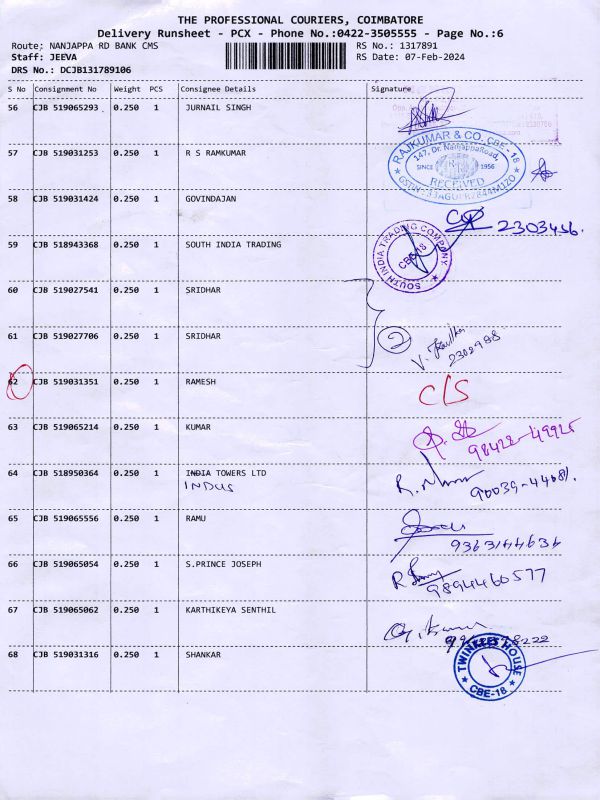 THE PROFESSIONAL COURIERS, COIMBATORE
Delivery Runsheet - PCX - Phone No.:0422-3505555 - Page No.:6
Route; NANJAPPA RD BANK CMS
RS No.: 1317891
Staff: JEEVA
RS Date: 07-Feb-2024
DRS No.: DCJB131789106
S No Consignment No Weight PCS Consignee Details Signature
56 CJB 519065293 0.250 1 JURNAIL SINGH
RAJKUMAR & CO. CBE - 18
147, Dr. Nanjappa Road,
SINCE 1956
RECEIVED
57 CJB 519031253 0.250 1 R S RAMKUMAR
58 CJB 519031424 0.250 1 GOVINDAJAN
2303456.
59 CJB 518943368 0.250 1 SOUTH INDIA TRADING
SOUTH INDIA TRADING COMPANY
CBE-18
60 CJB 519027541 0.250 1 SRIDHAR
61 CJB 519027706 0.250 1 SRIDHAR
2
2302998
62 CJB 519031351 0.250 1 RAMESH
C/S
63 CJB 519065214 0.250 1 KUMAR
98422-49925
64 CJB 518950364 0.250 1 INDIA TOWERS LTD
INDUS
65 CJB 519065556 0.250 1 RAMU
9363144634
66 CJB 519065054 0.250 1 S.PRINCE JOSEPH
9894460577
67 CJB 519065062 0.250 1 KARTHIKEYA SENTHIL
68 CJB 519031316 0.250 1 SHANKAR
TWINKLES HOUSE
CBE-18